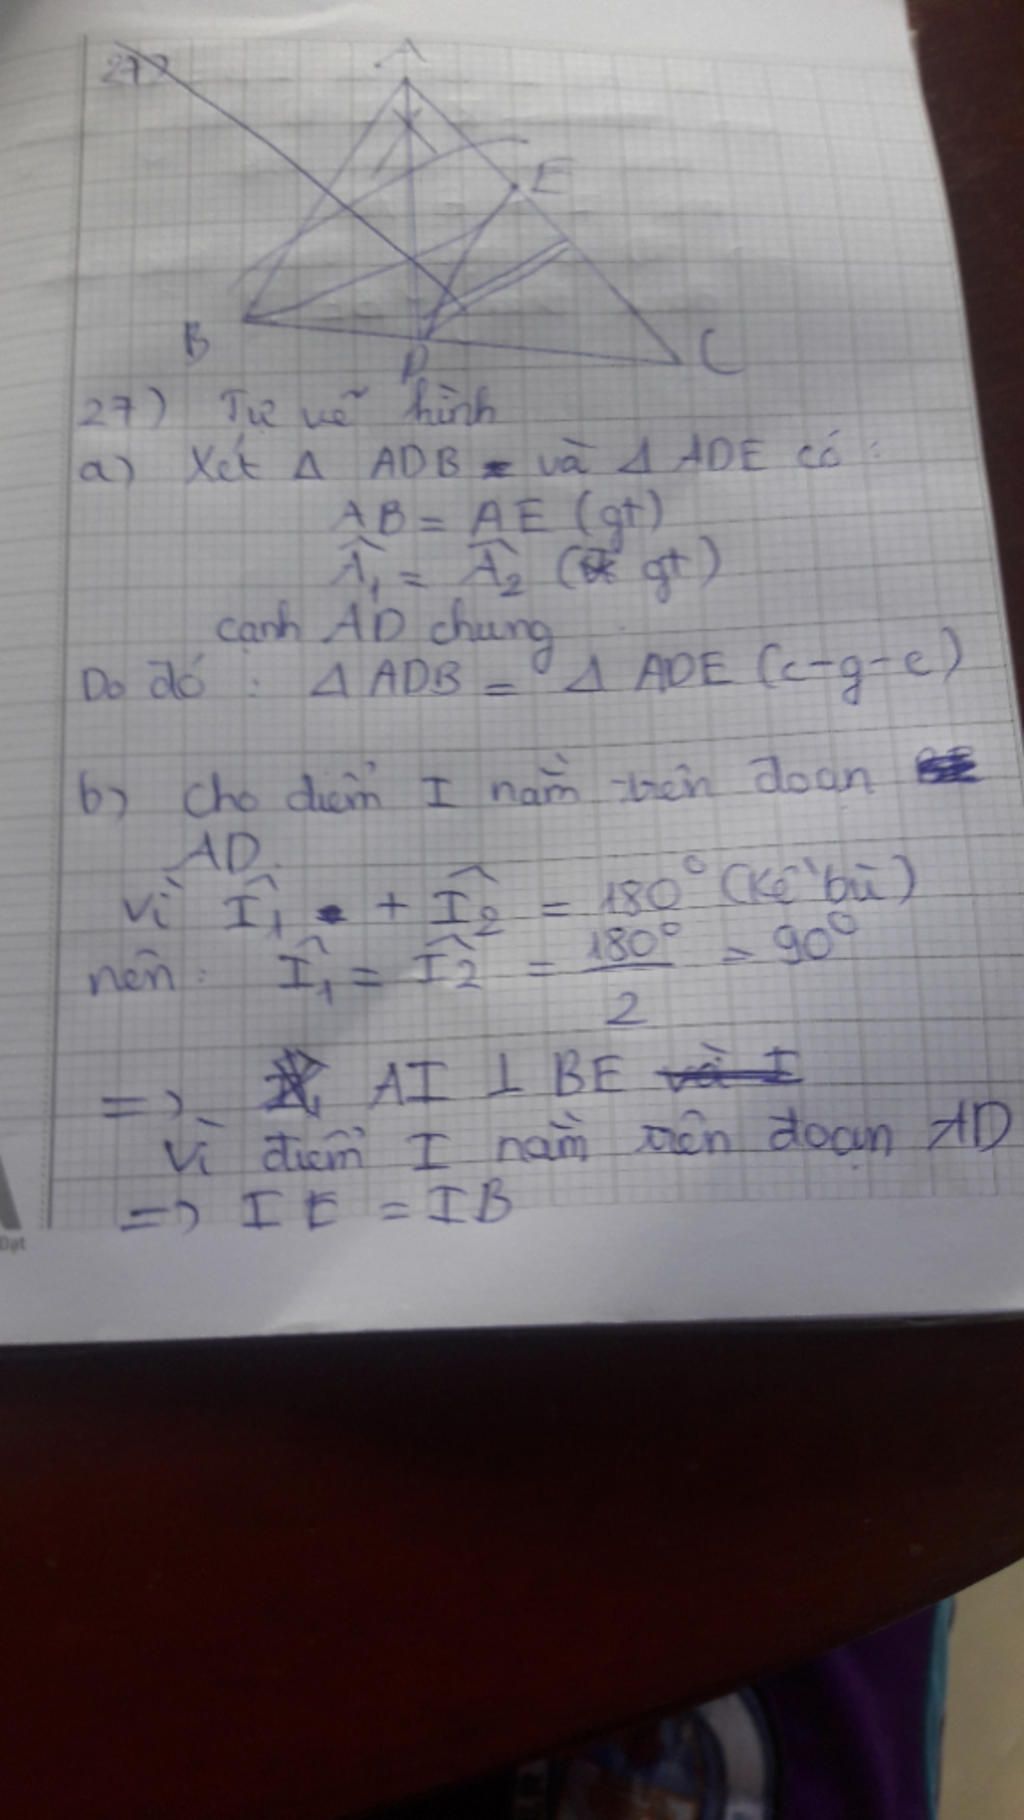 27)
A
E
B
D
C
27) Tự vẽ hình
a) Xét Δ ADB và Δ ADE có :
AB = AE (gt)
Â₁ = Â₂ (gt)
cạnh AD chung
Do đó : Δ ADB = Δ ADE (c-g-c)
b) Cho điểm I nằm trên đoạn
AD.
Vì Î₁ + Î₂ = 180° (Kề bù)
nên : Î₁ = Î₂ = 180°/2 = 90°
=> AI ⊥ BE và I
Vì điểm I nằm trên đoạn AD
=> IE = IB
Dpt